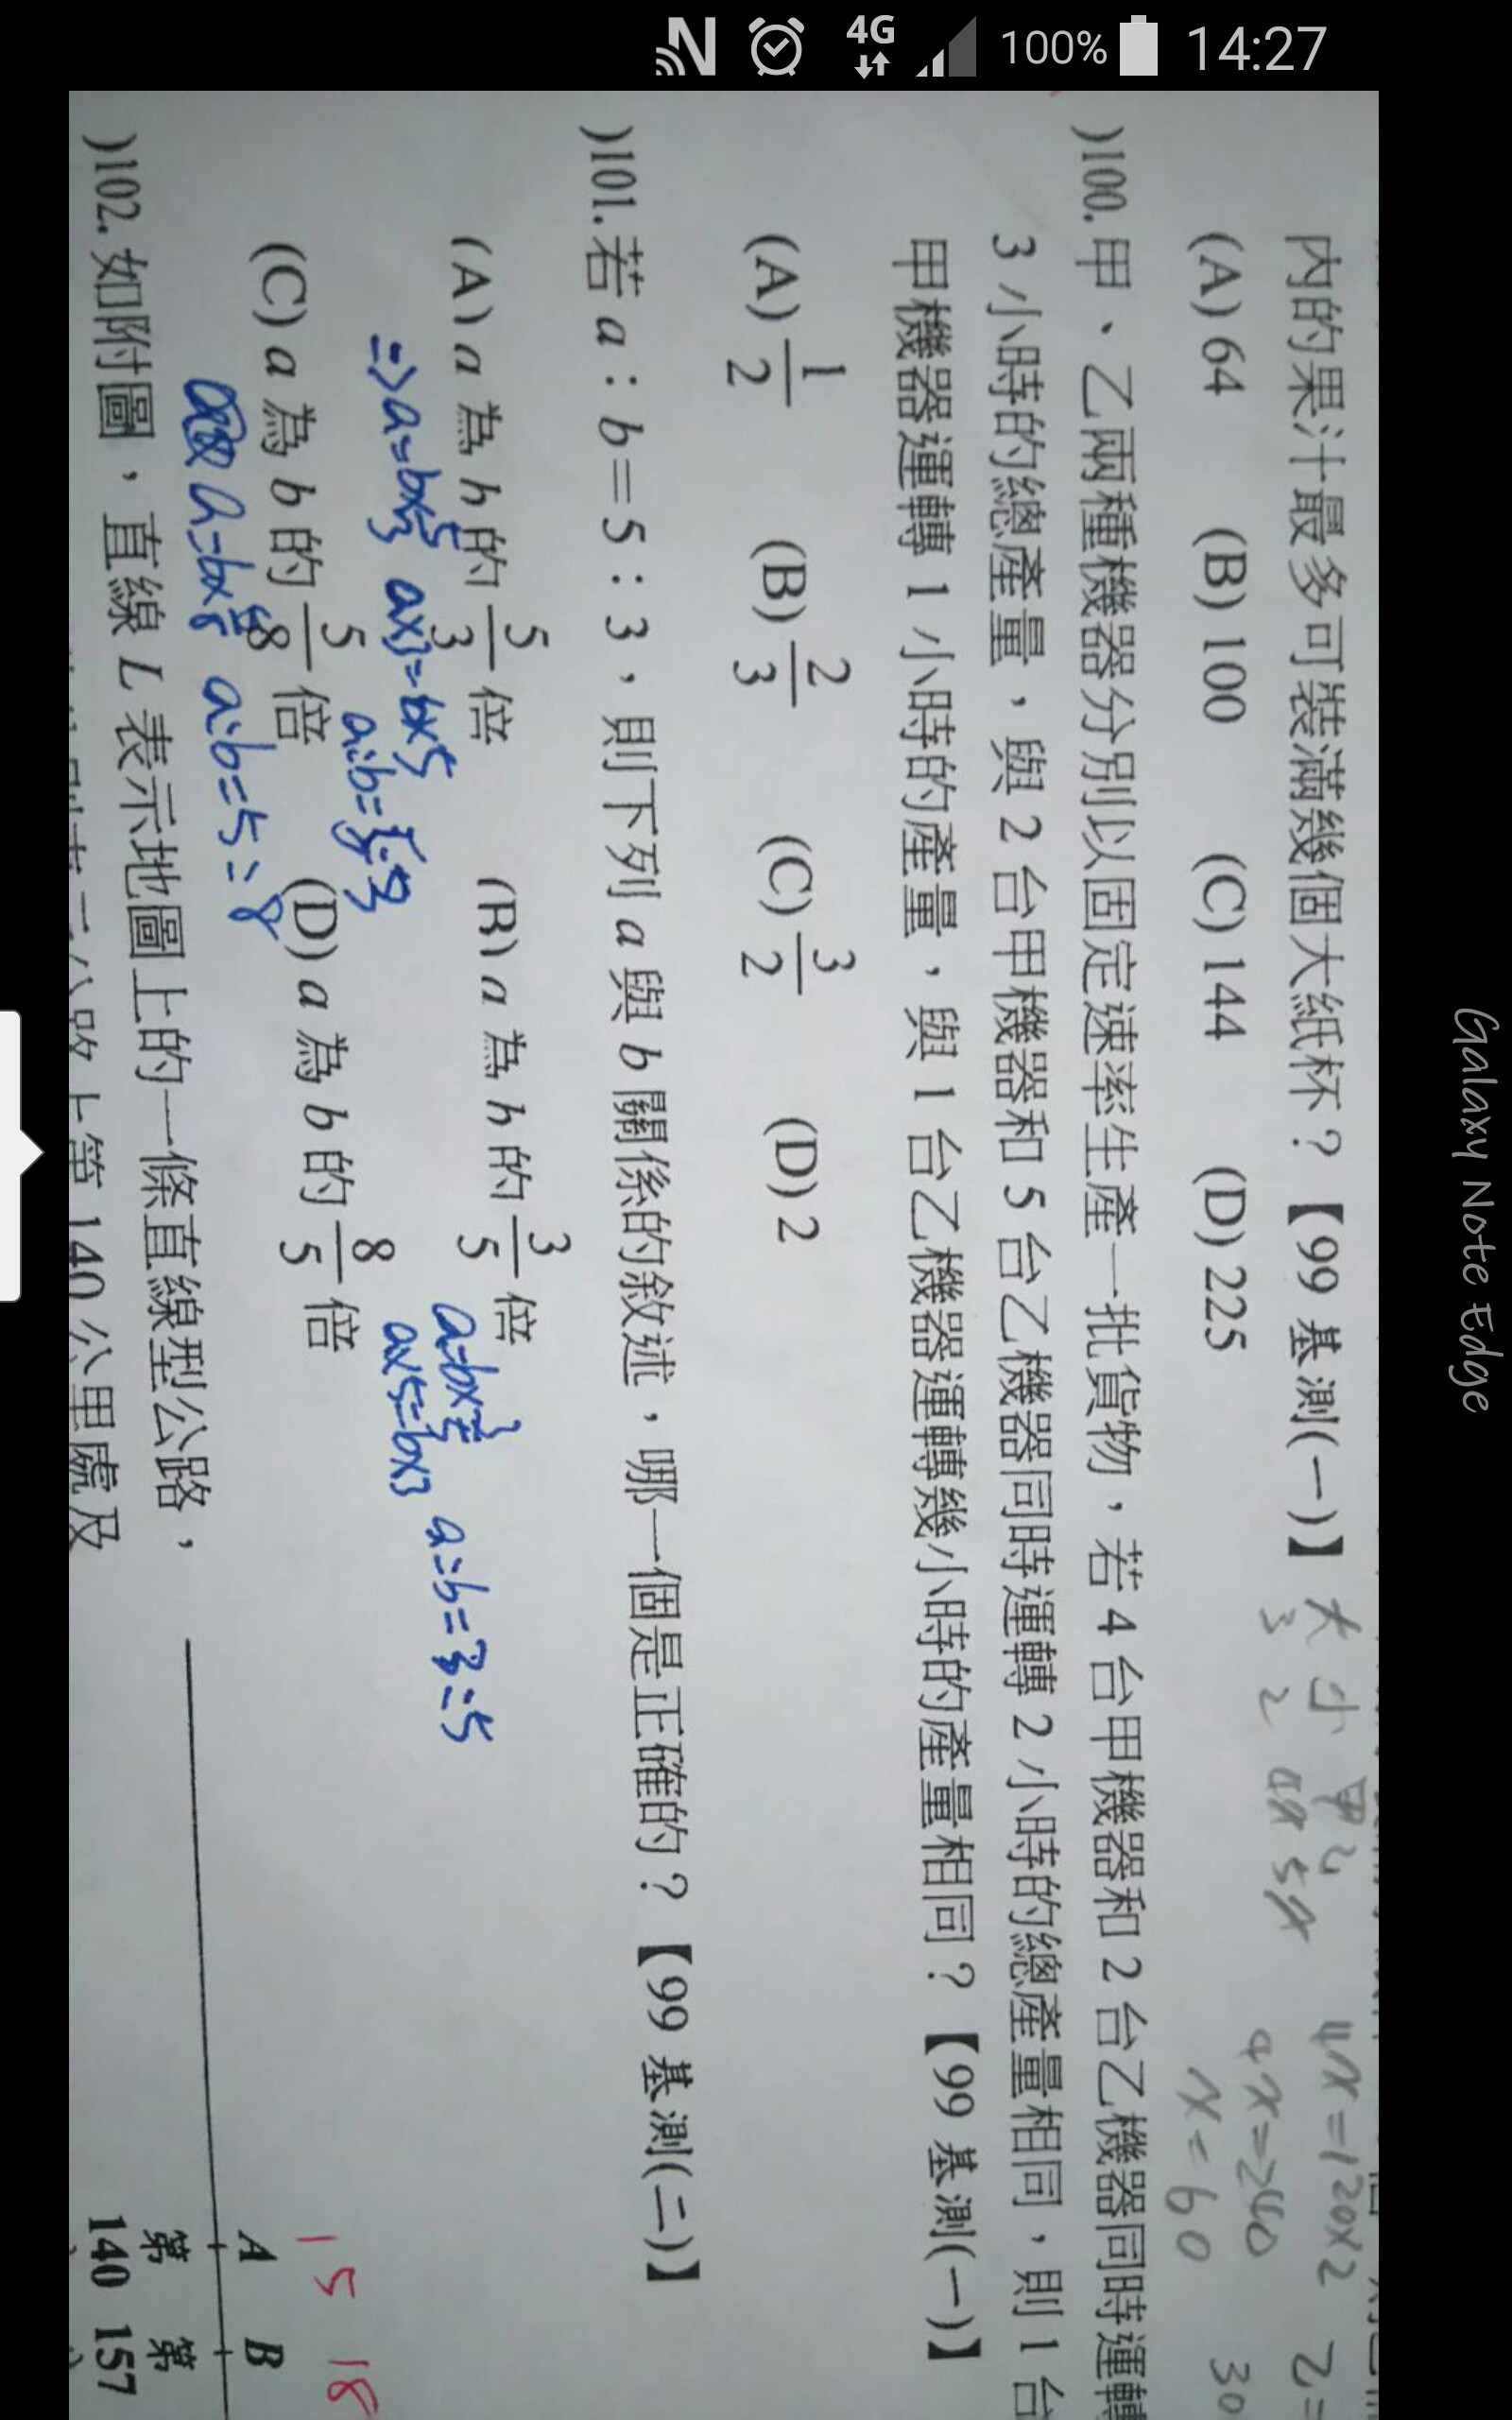 100% 14:27
4G
Galaxy Note Edge
內的果汁最多可裝滿幾個大紙杯？【99 基測(一)】
(A) 64 (B) 100 (C) 144 (D) 225
大 小 甲 乙
3 2 4x 5x
4x=120x2
4x=240
x=60
乙=
30
)100. 甲、乙兩種機器分別以固定速率生產一批貨物，若 4 台甲機器和 2 台乙機器同時運轉
3 小時的總產量，與 2 台甲機器和 5 台乙機器同時運轉 2 小時的總產量相同，則 1 台
甲機器運轉 1 小時的產量，與 1 台乙機器運轉幾小時的產量相同？【99 基測(一)】
(A) 1/2 (B) 2/3 (C) 3/2 (D) 2
)101. 若 a：b＝5：3，則下列 a 與 b 關係的敘述，哪一個是正確的？【99 基測(二)】
(A) a 為 b 的 5/3 倍 (B) a 為 b 的 3/5 倍
=> a=bx5/3 ax3=bx5
a:b=5:3
a=bx3/5 a:b=3:5
ax5=bx3
(C) a 為 b 的 5/8 倍 (D) a 為 b 的 8/5 倍
a=bx5/8 a:b=5:8
)102. 如附圖，直線 L 表示地圖上的一條直線型公路，
15 18
A B
第 第
140 157
公路上第 140 公里處及